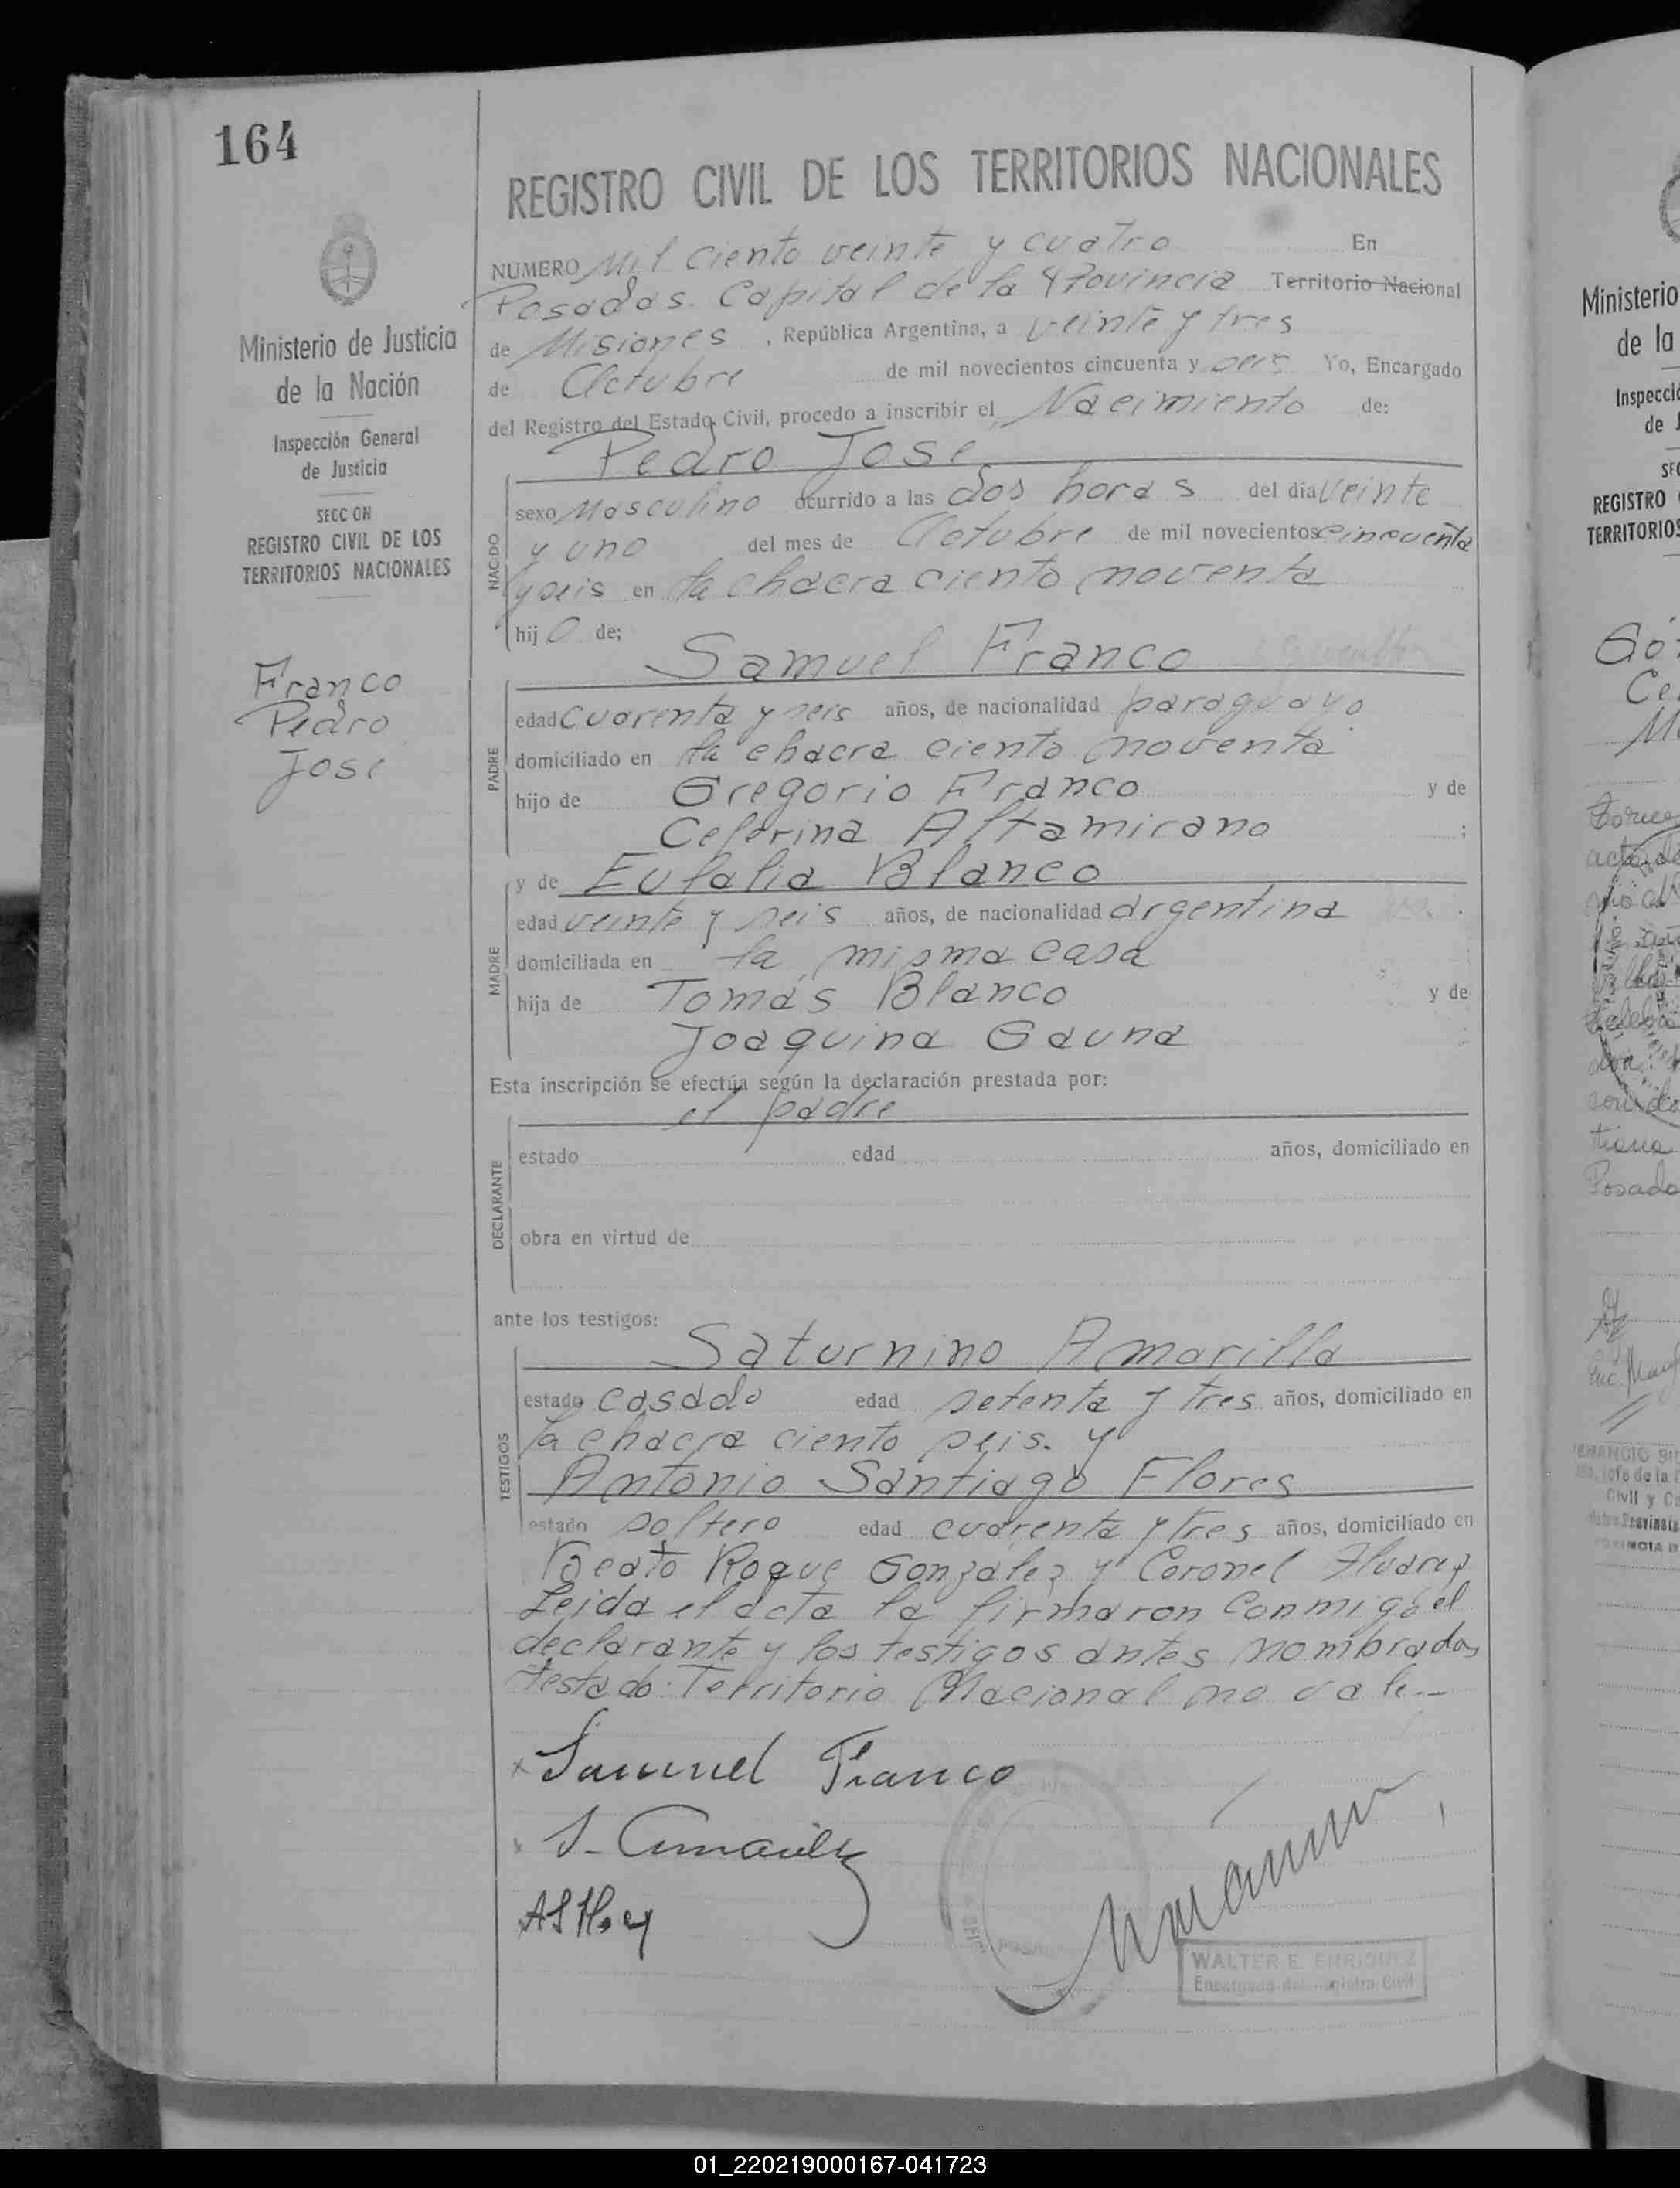 164
REGISTRO CIVIL DE LOS TERRITORIOS NACIONALES
NUMERO Mil ciento veinte y cuatro En
Posadas. Capital de la Provincia Territorio Nacional
de Misiones, República Argentina, a veinte y tres
de Octubre de mil novecientos cincuenta y seis Yo, Encargado
del Registro del Estado Civil, procedo a inscribir el Nacimiento de:
Pedro Jose
NACIDO
sexo Masculino ocurrido a las dos horas del día veinte
y uno del mes de Octubre de mil novecientos cincuenta
y seis en la chacra ciento noventa
hijo de;
Samuel Franco
PADRE
edad cuarenta y seis años, de nacionalidad paraguayo
domiciliado en la chacra ciento noventa
hijo de Gregorio Franco y de
Ceferina Altamirano ;
y de Eulalia Blanco
MADRE
edad veinte y seis años, de nacionalidad argentina
domiciliada en la misma casa
hija de Tomás Blanco y de
Joaquina Gauna
Esta inscripción se efectúa según la declaración prestada por:
el padre
DECLARANTE
estado edad años, domiciliado en
obra en virtud de
ante los testigos:
Saturnino Amarilla
TESTIGOS
estado casado edad setenta y tres años, domiciliado en
la chacra ciento seis. y
Antonio Santiago Flores
estado soltero edad cuarenta y tres años, domiciliado en
Beato Roque Gonzalez y Coronel Alvarez
Leida el acta la firmaron conmigo el
declarante y los testigos antes nombrados
testado: Territorio Nacional no vale.-
Samuel Franco
WALTER E. ENRIQUEZ
Encargado del Registro Civil
Ministerio de Justicia
de la Nación
Inspección General
de Justicia
SECCION
REGISTRO CIVIL DE LOS
TERRITORIOS NACIONALES
Franco
Pedro
Jose
Ministerio
de la
REGISTRO
TERRITORIOS
01_220219000167-041723